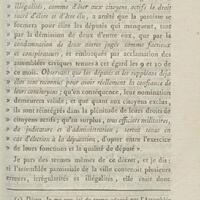 » illégalités, comme d'ôter aux citoyens actifs le droit
» sacré d'élire et d'être élu, a arrêté que la paroisse se
» bornera pour élire les députés qui manquent, tant
» par la démission de deux d'entre eux, que par la
» condamnation de deux autres jugés comme factieux
» et conspirateurs; et enfloqués par acclamation de
» assemblées civiques tenues à cet égard les 9 et 10 de
» ce mois. Observant que les députés et les suppléans déjà
» élus sont reconnus pour avoir réellement la confiance de
» leurs concitoyens; qu'en conséquence, leur nomination
» est maintenue, et que quant aux citoyens exclus,
» ils sont réintégrés dans la plénitude de leurs droits de
» citoyens actifs; qu'au surplus, tous officiers militaires,
» de judicature et d'administration, seront tenus en
» cas d'élection à la députation, d'opter entre l'exercice
» de leurs fonctions et la qualité de député ».
Je pars des termes mêmes de ce décret, et je dis:
si l'assemblée paroissiale de la ville contenoit plusieurs
erreurs, irrégularités et illégalités, elle étoit donc